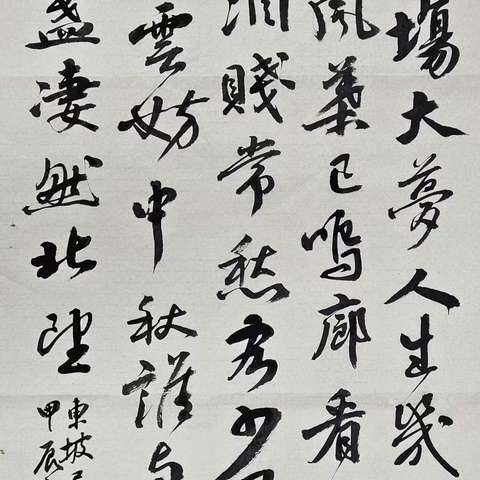 場大夢人生幾
風葉已鳴廊看
酒賤常愁客少
雲妨中秋誰與
盞淒然北望
東坡
甲辰